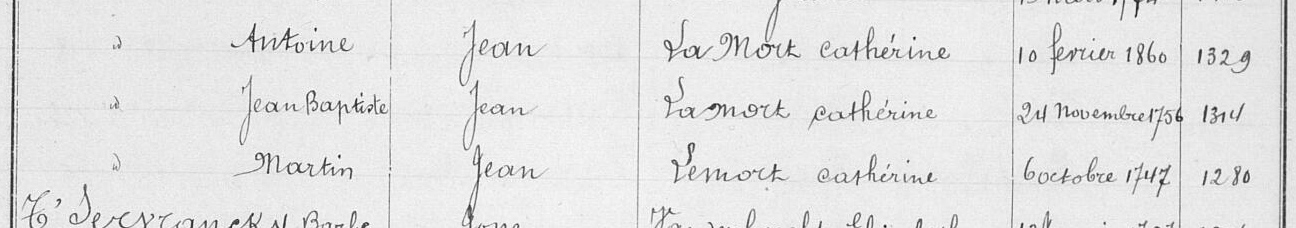 id Antoine Jean La Mort Cathérine 10 fevrier 1860 1329
id Jean Baptiste Jean La mort Cathérine 24 Novembre 1756 1314
id Martin Jean Lemort Cathérine 6 octobre 1747 1280
T'Servranckx Barbe